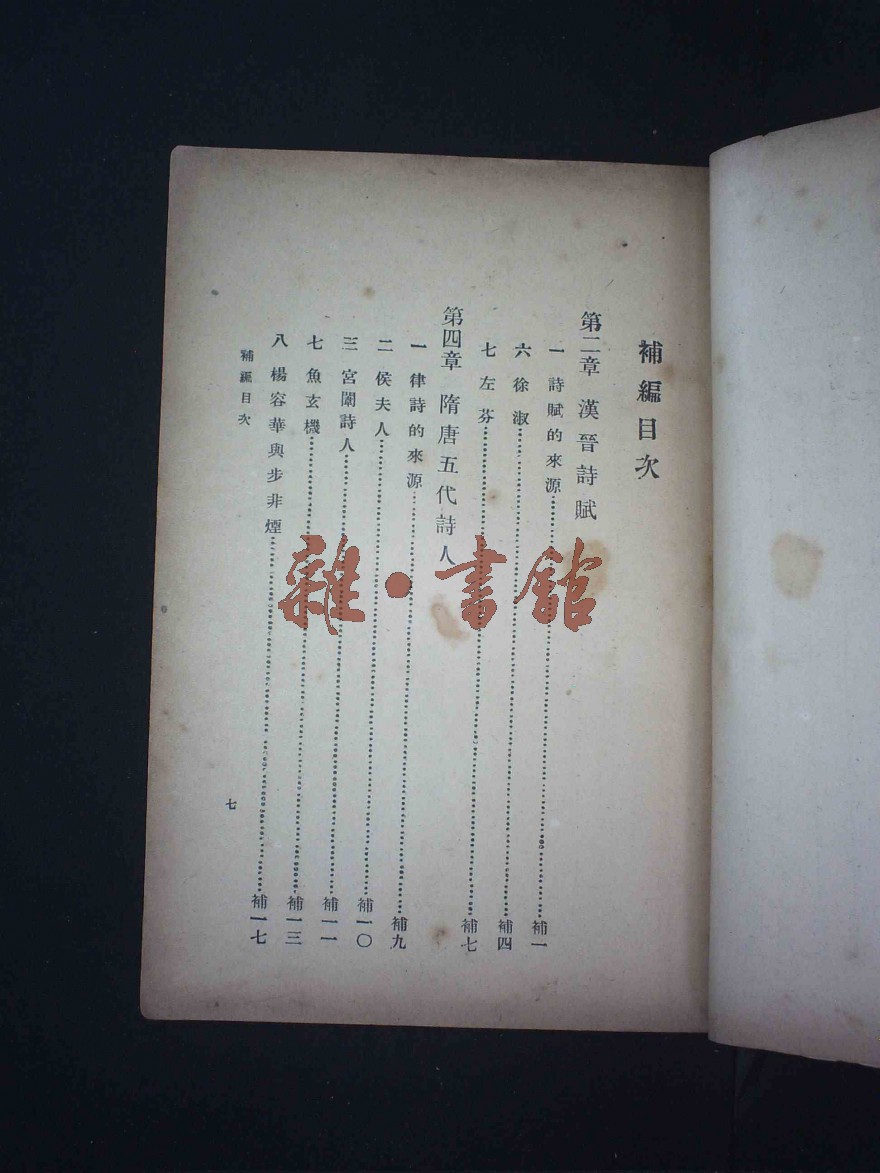 補編目次
第二章 漢晉詩賦
一 詩賦的來源……補一
六 徐淑……補四
七 左芬……補七
第四章 隋唐五代詩人
一 律詩的來源……補九
二 侯夫人……補一〇
三 宮闈詩人……補一一
七 魚玄機……補一三
八 楊容華與步非煙……補一七
補編目次
七
雜·書館